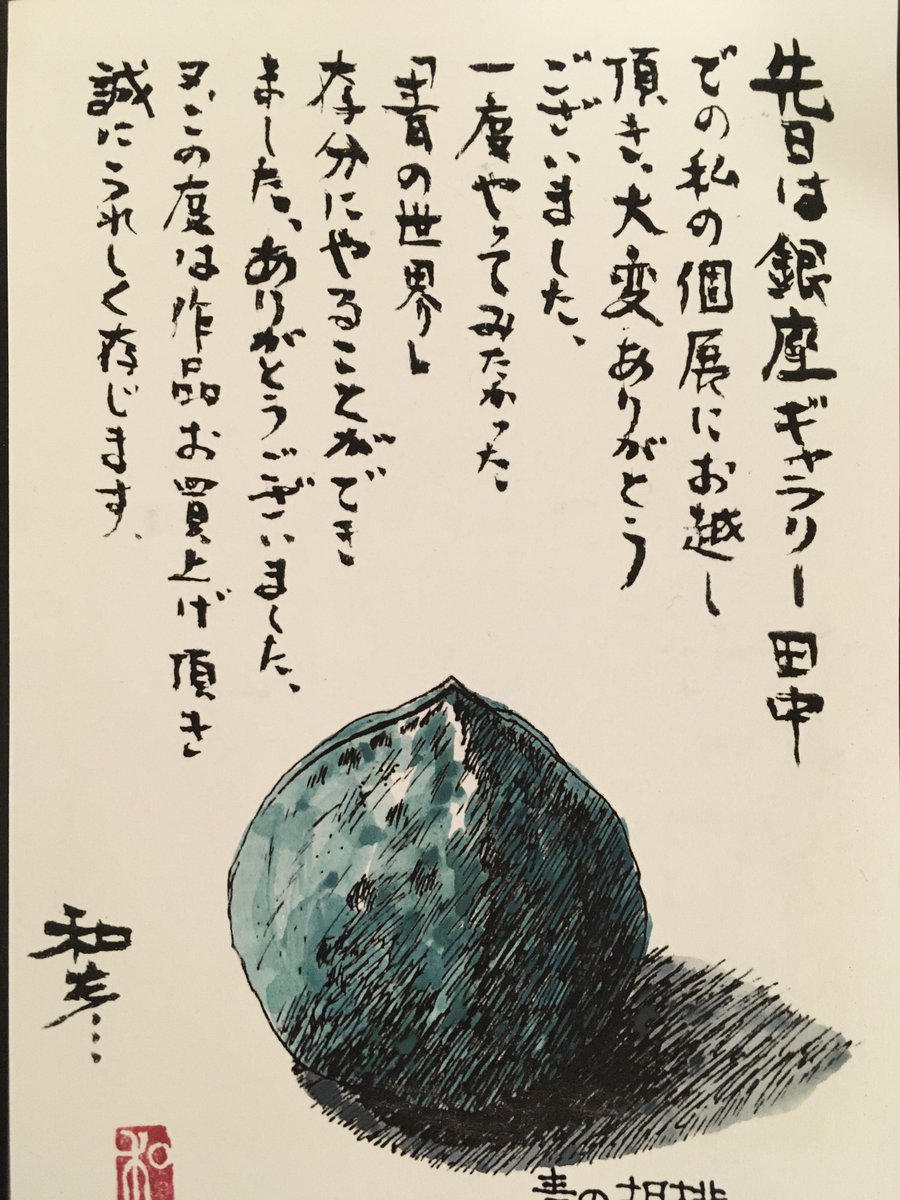 先日は銀座ギャラリー田中
での私の個展にお越し
頂き、大変ありがとう
ございました、
一度やってみたかった
「青の世界」
存分にやることができ
ました、ありがとうございました、
又、この度は作品お買上げ頂き
誠にうれしく存じます、
和
青の胡桃
和